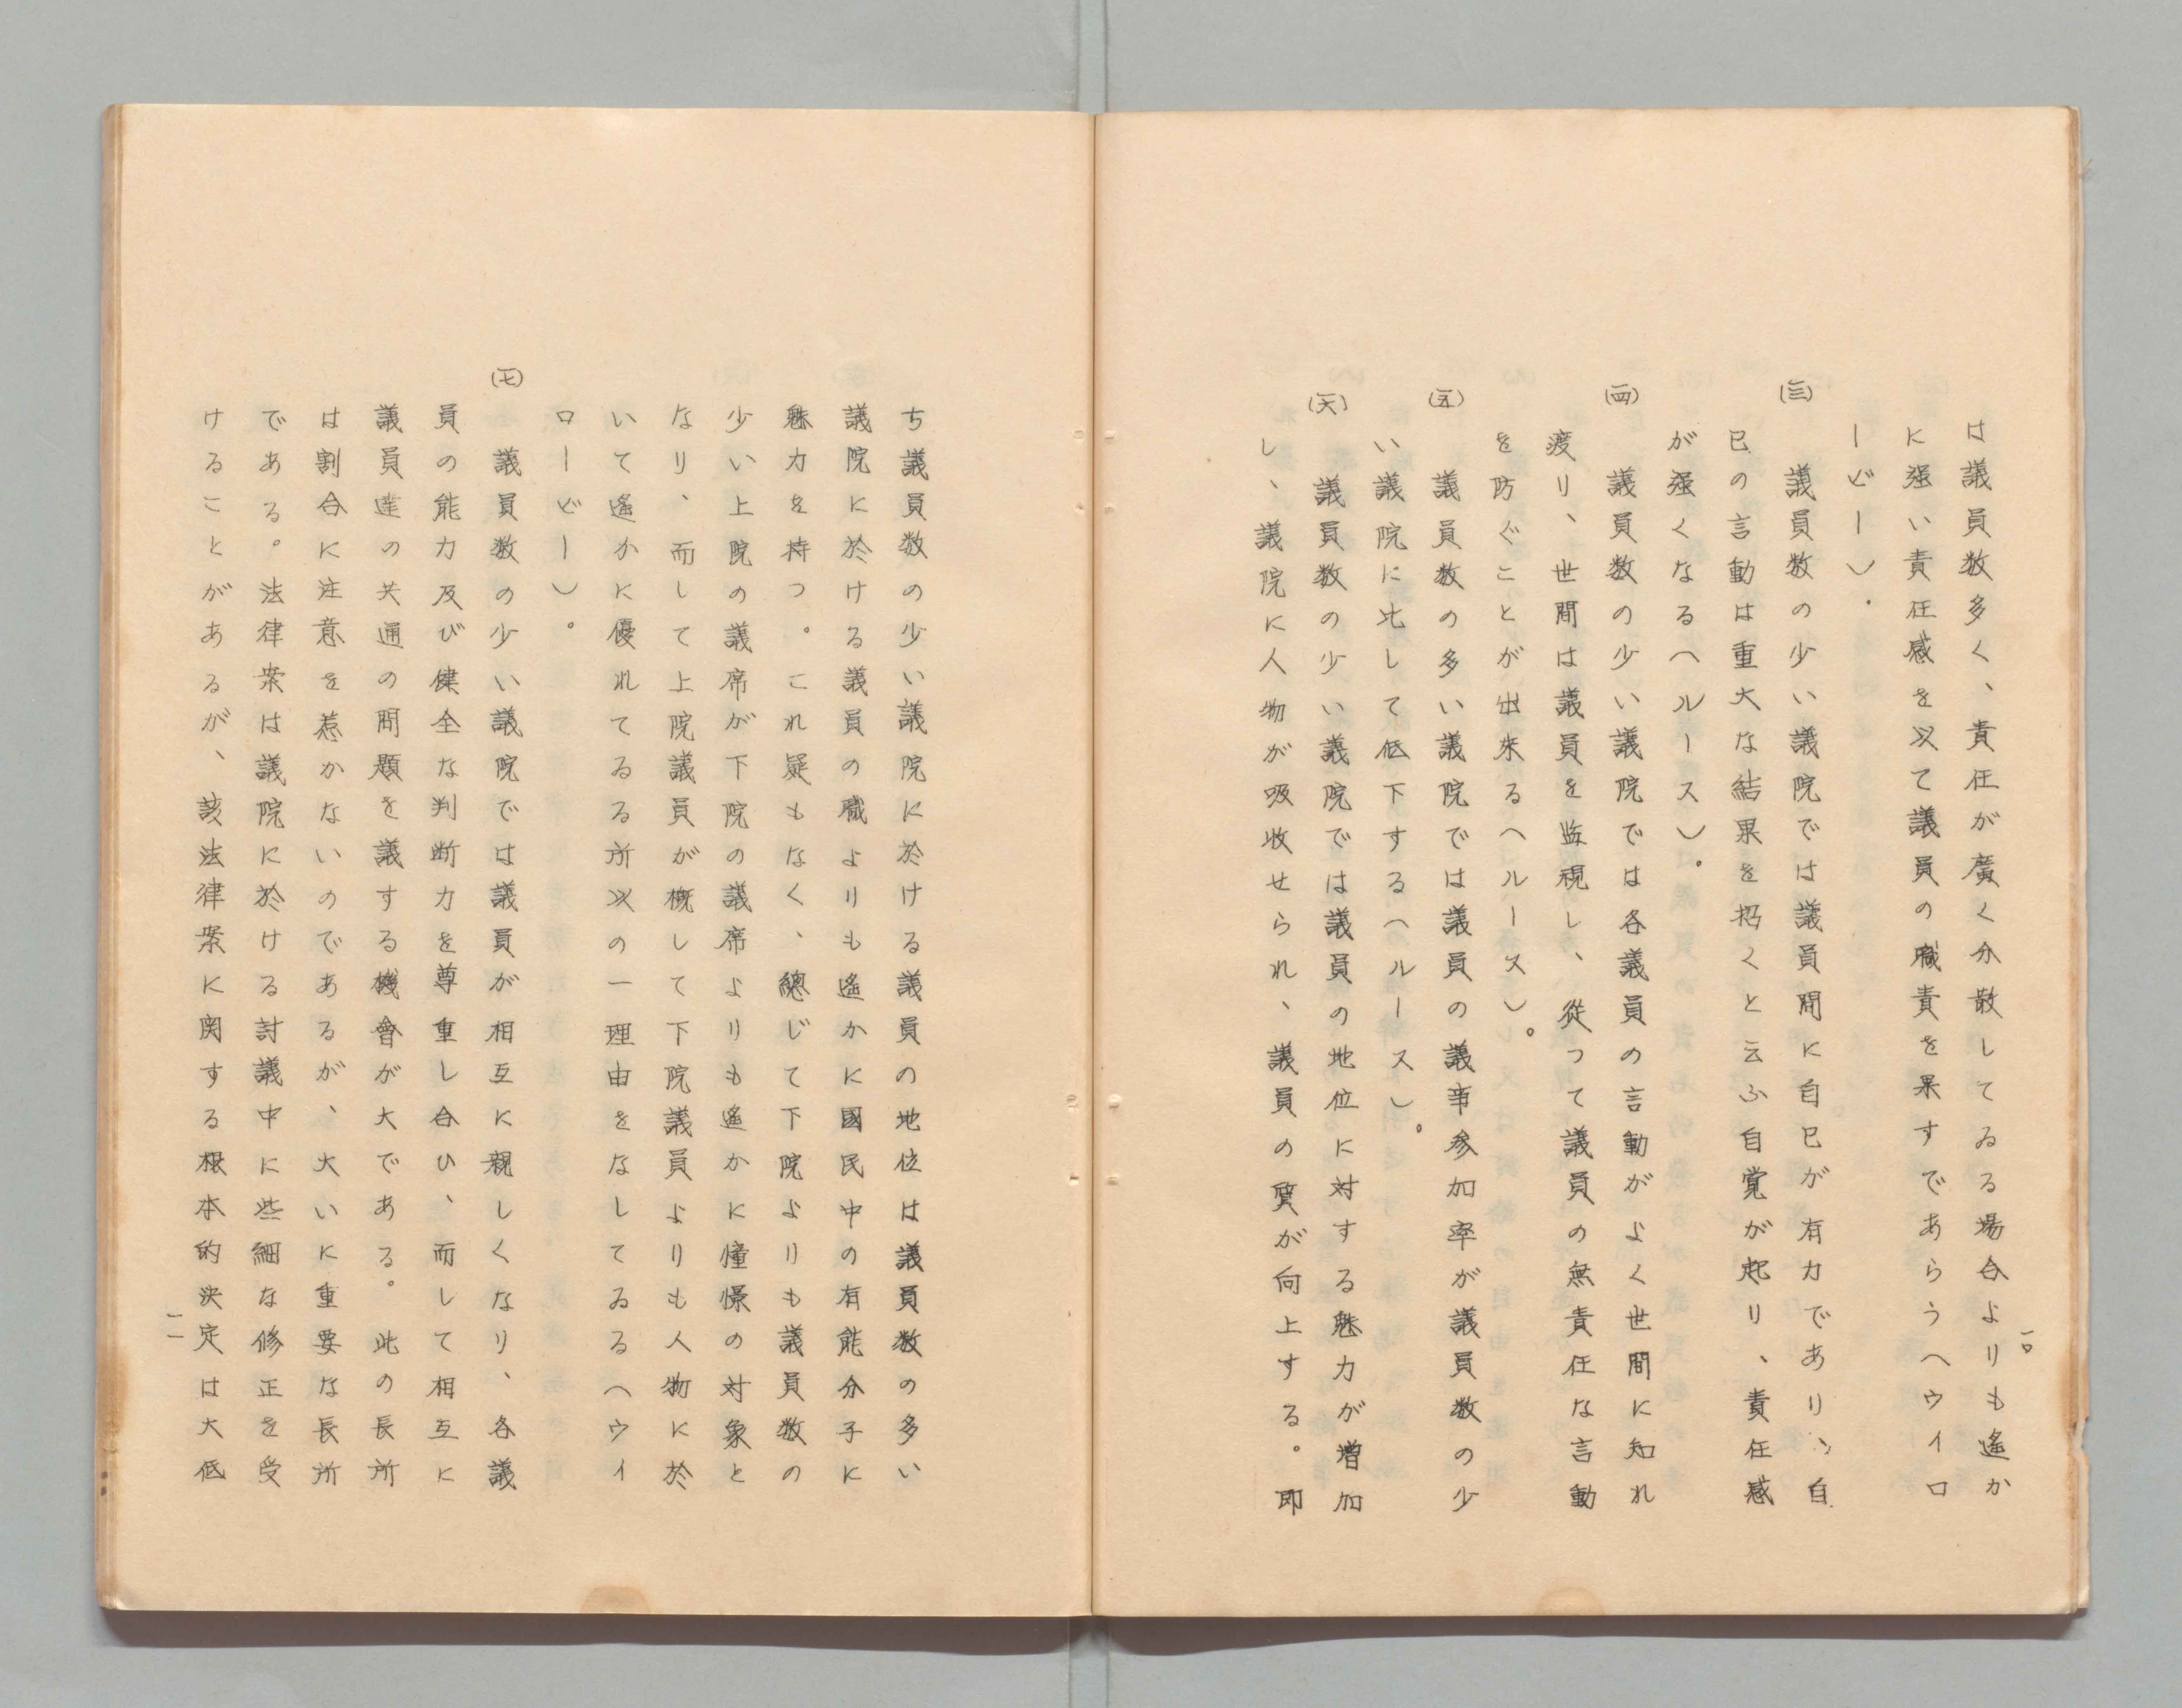 は議員数多く、責任が廣く分散してゐる場合よりも遙か
に强い責任感を以て議員の職責を果すであらう（ウイロ
ービー）．
(三)　議員数の少い議院では議員間に自己が有力であり、自
己の言動は重大な結果を招くと云ふ自覚が起り、責任感
が强くなる（ルース）。
(四)　議員数の少い議院では各議員の言動がよく世間に知れ
渡り、世間は議員を監視し、從って議員の無責任な言動
を防ぐことが出来る（ルース）。
(五)　議員数の多い議院では議員の議事参加率が議員数の少
い議院に比して低下する（ルース）。
(六)　議員数の少い議院では議員の地位に対する魅力が増加
し、議院に人物が吸收せられ、議員の質が向上する。即
一〇
ち議員数の少い議院に於ける議員の地位は議員数の多い
議院に於ける議員の職よりも遙かに國民中の有能分子に
魅力を持つ。これ疑もなく、總じて下院よりも議員数の
少い上院の議席が下院の議席よりも遙かに憧憬の対象と
なり、而して上院議員が概して下院議員よりも人物に於
いて遙かに優れてゐる所以の一理由をなしてゐる（ウイ
ロービー）。
(七)　議員数の少い議院では議員が相互に親しくなり、各議
員の能力及び健全な判断力を尊重し合ひ、而して相互に
議員達の共通の問題を議する機會が大である。此の長所
は割合に注意を惹かないのであるが、大いに重要な長所
である。法律案は議院に於ける討議中に些細な修正を受
けることがあるが、該法律案に関する根本的決定は大低
一一